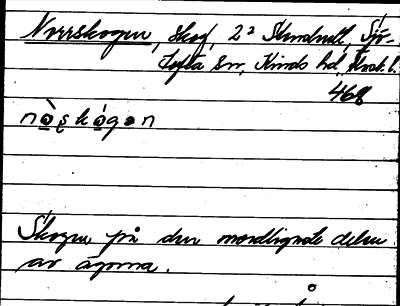 Norrskogen, skog, 2² Strudsvall, Sjö-
tofta sn, Kinds hd, Älvsb. l.
468
nò̱ʂkó̱gən
Skogen på den nordligaste delen
av ägorna.